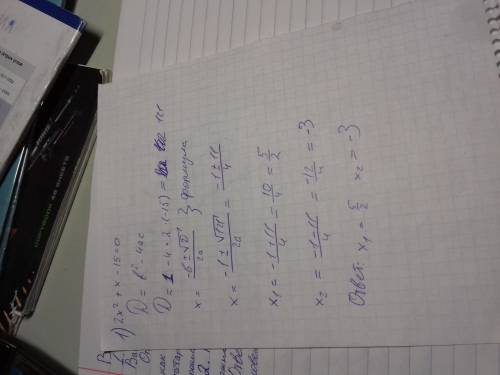 1) 2x² + x - 15 = 0
D = b² - 4ac
D = 1 - 4 · 2 · (-15) = 121
x = (-b ± √D) / 2a } формула
x = (-1 ± √121) / 2a = (-1 ± 11) / 4
x₁ = (-1 + 11) / 4 = 10 / 4 = 5 / 2
x₂ = (-1 - 11) / 4 = -12 / 4 = -3
Ответ: x₁ = 5 / 2 x₂ = -3